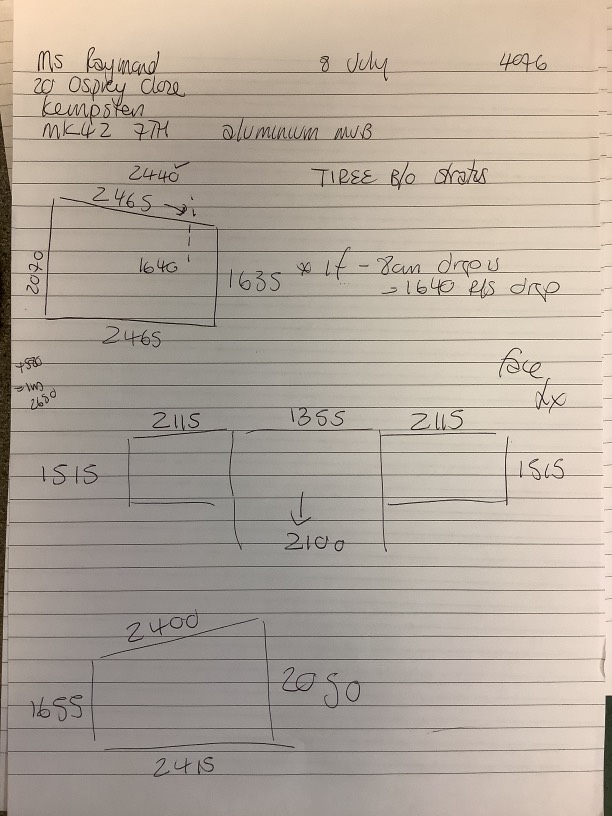 Ms Raymond 8 July 4076
20 Osprey Close
Kempston
MK42 7TH aluminium
2440
TIREE B/o stratus
2465
2070
1640
1635 * If - 8cm drop
= 1640 R/S drop
2465
face
2650
2115 1355 2115
1515 1515
2100
2400
1655 2050
2415